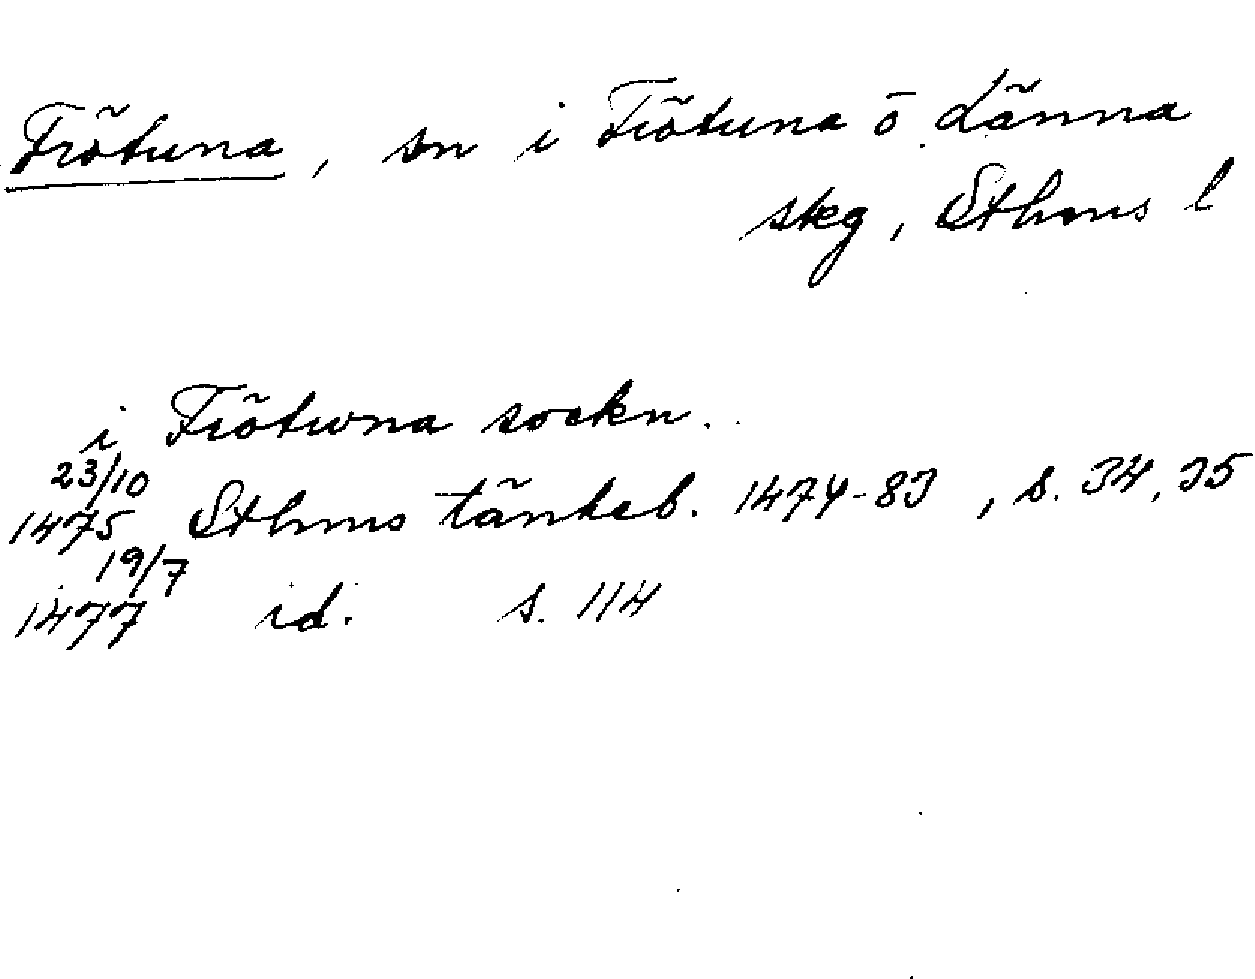 Frötuna, sn i Frötuna o Länna
skg, Sthms l
i Frötwna sockn.
23/10
1475 Sthms tänkeb. 1474-83, s. 34, 35
19/7
1477 id. s. 114